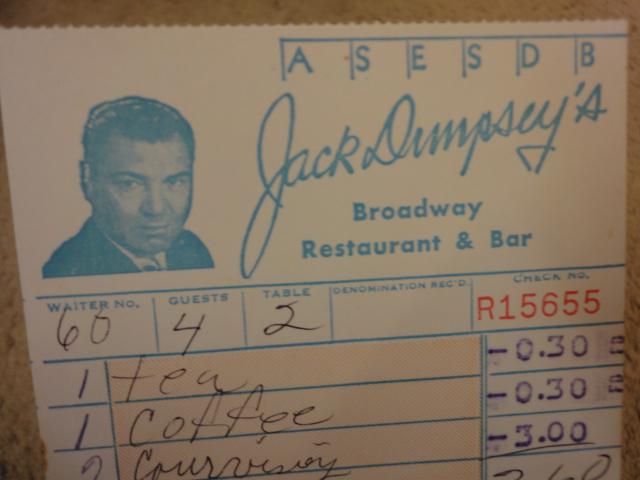 A S E S D B
Jack Dempsey's
Broadway
Restaurant & Bar
WAITER NO. GUESTS TABLE DENOMINATION REC'D. CHECK NO.
60 4 2 R15655
1 tea - 0.30
1 coffee - 0.30
2 Courvisoy - 3.00
3.60